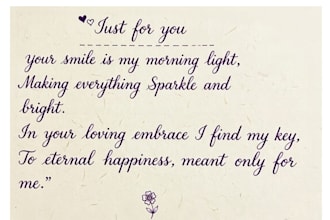 Just for you
your smile is my morning light,
Making everything Sparkle and
bright.
In your loving embrace I find my key,
To eternal happiness, meant only for
me.”